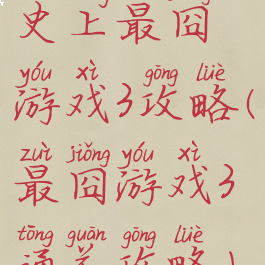 史上最囧
yóu xì gōng lüè
游戏3攻略(
zuì jiǒng yóu xì
最囧游戏3
tōng guān gōng lüè
通关攻略)